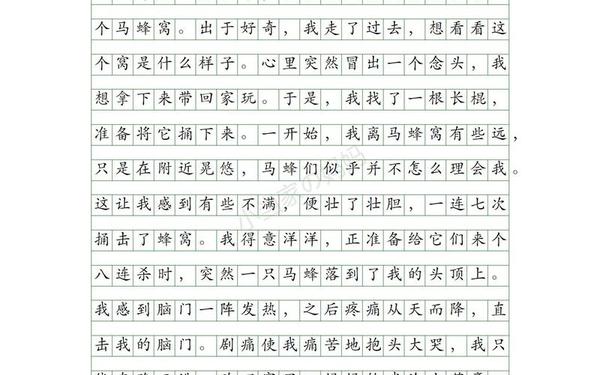 个马蜂窝。出于好奇，我走了过去，想看看这
个窝是什么样子。心里突然冒出一个念头，我
想拿下来带回家玩。于是，我找了一根长棍，
准备将它捅下来。一开始，我离马蜂窝有些远，
只是在附近晃悠，马蜂们似乎并不怎么理会我。
这让我感到有些不满，便壮了壮胆，一连七次
捅击了蜂窝。我得意洋洋，正准备给它们来个
八连杀时，突然一只马蜂落到了我的头顶上。
我感到脑门一阵发热，之后疼痛从天而降，直
击我的脑门。剧痛使我痛苦地抱头大哭，我只